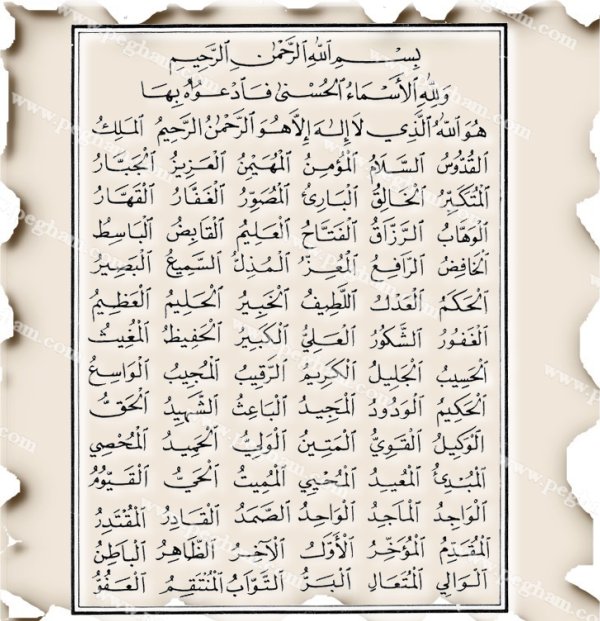 بِسْمِ اللهِ الرَّحْمٰنِ الرَّحِيْمِ
وَلِلّٰهِ الْأَسْمَاءُ الْحُسْنٰى فَادْعُوْهُ بِهَا
هُوَ اللهُ الَّذِي لَا إِلٰهَ إِلَّا هُوَ الرَّحْمٰنُ الرَّحِيْمُ الْمَلِكُ
الْقُدُّوْسُ السَّلَامُ الْمُؤْمِنُ الْمُهَيْمِنُ الْعَزِيْزُ الْجَبَّارُ
الْمُتَكَبِّرُ الْخَالِقُ الْبَارِئُ الْمُصَوِّرُ الْغَفَّارُ الْقَهَّارُ
الْوَهَّابُ الرَّزَّاقُ الْفَتَّاحُ الْعَلِيْمُ الْقَابِضُ الْبَاسِطُ
الْخَافِضُ الرَّافِعُ الْمُعِزُّ الْمُذِلُّ السَّمِيْعُ الْبَصِيْرُ
الْحَكَمُ الْعَدْلُ اللَّطِيْفُ الْخَبِيْرُ الْحَلِيْمُ الْعَظِيْمُ
الْغَفُوْرُ الشَّكُوْرُ الْعَلِيُّ الْكَبِيْرُ الْحَفِيْظُ الْمُغِيْثُ
الْحَسِيْبُ الْجَلِيْلُ الْكَرِيْمُ الرَّقِيْبُ الْمُجِيْبُ الْوَاسِعُ
الْحَكِيْمُ الْوَدُوْدُ الْمَجِيْدُ الْبَاعِثُ الشَّهِيْدُ الْحَقُّ
الْوَكِيْلُ الْقَوِيُّ الْمَتِيْنُ الْوَلِيُّ الْحَمِيْدُ الْمُحْصِي
الْمُبْدِئُ الْمُعِيْدُ الْمُحْيِي الْمُمِيْتُ الْحَيُّ الْقَيُّوْمُ
الْوَاجِدُ الْمَاجِدُ الْوَاحِدُ الصَّمَدُ الْقَادِرُ الْمُقْتَدِرُ
الْمُقَدِّمُ الْمُؤَخِّرُ الْأَوَّلُ الْآخِرُ الظَّاهِرُ الْبَاطِنُ
الْوَالِي الْمُتَعَالِ الْبَرُّ التَّوَّابُ الْمُنْتَقِمُ الْعَفُوُّ
www.pegham.com